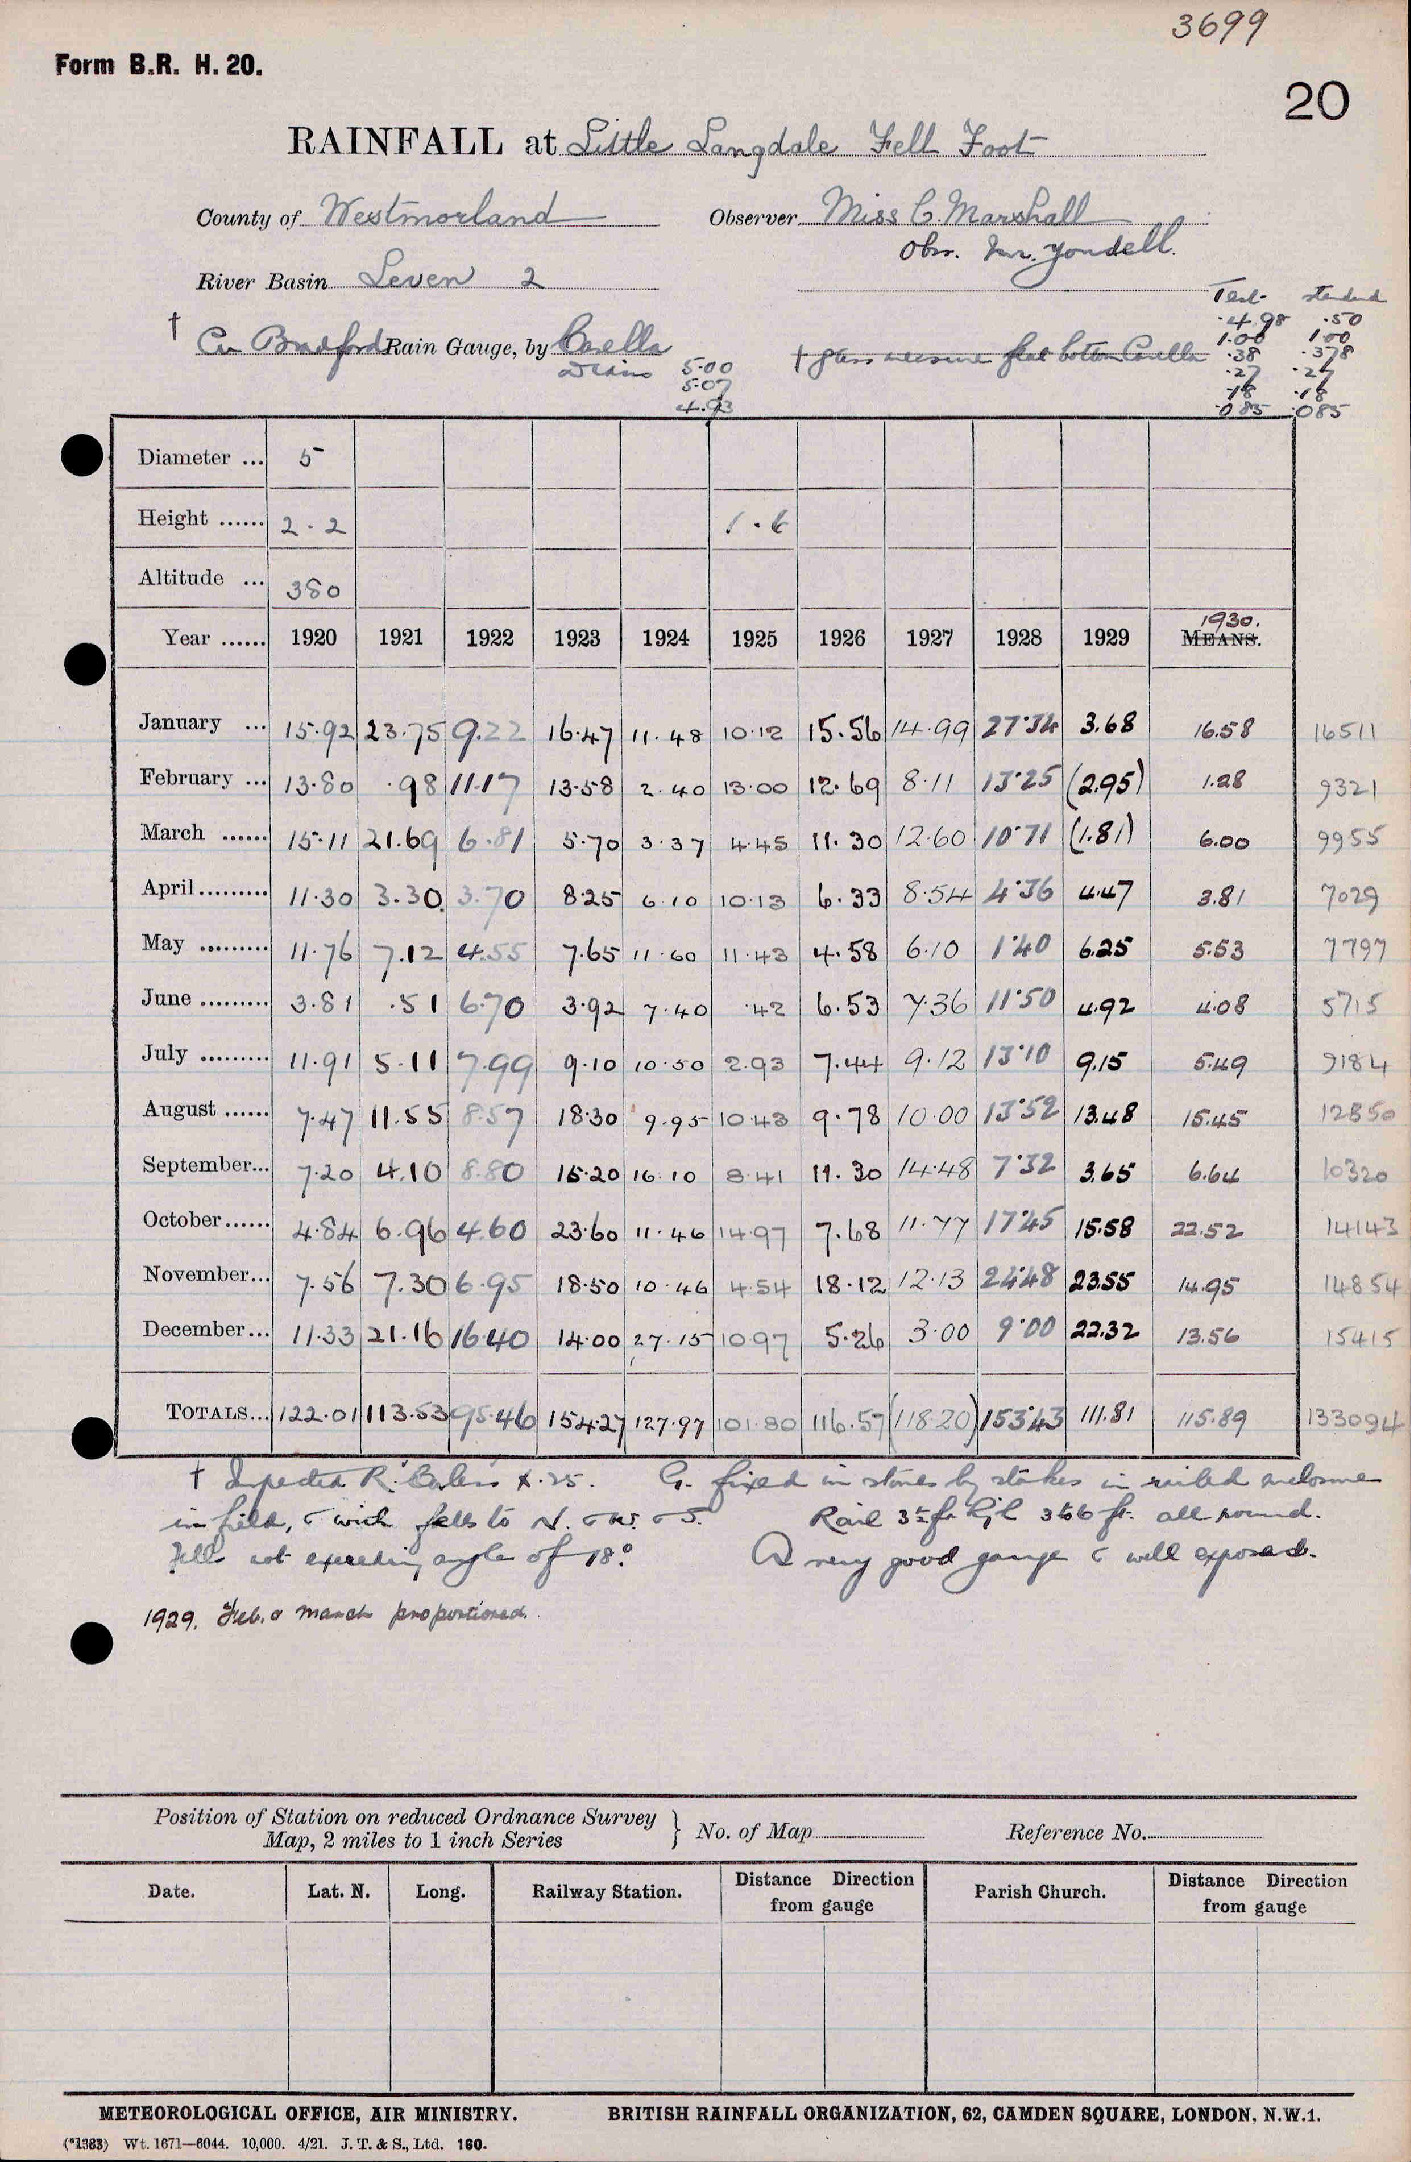 3699
Form B.R. H. 20.
20
RAINFALL at Little Langdale Fell Foot
County of Westmorland Observer Miss C. Marshall
Obs. Mr. Youdell.
River Basin Leven 2
Test standard
† Cu Bradford Rain Gauge, by Casella † glass measure flat bottom Casella
.498 .50
1.00 1.00
.38 .378
.27 .27
.18 .18
.085 .085
5.00
5.07
4.93
Diameter ... 5
Height ...... 2-2 1-6
Altitude ... 380
1930.
Year ...... 1920 1921 1922 1923 1924 1925 1926 1927 1928 1929 MEANS.
January ... 15.92 23.75 9.22 16.47 11.48 10.12 15.56 14.99 27.34 3.68 16.58 16511
February ... 13.80 .98 11.17 13.58 2.40 13.00 12.69 8.11 13.25 (2.95) 1.28 9321
March ...... 15.11 21.69 6.81 5.70 3.37 4.45 11.30 12.60 10.71 (1.81) 6.00 9955
April ......... 11.30 3.30 3.70 8.25 6.10 10.13 6.33 8.54 4.36 4.47 3.81 7029
May ......... 11.76 7.12 4.55 7.65 11.60 11.43 4.58 6.10 1.40 6.25 5.53 7797
June ......... 3.81 .51 6.70 3.92 7.40 .42 6.53 7.36 11.50 4.92 4.08 5715
July ......... 11.91 5.11 7.99 9.10 10.50 2.93 7.44 9.12 13.10 9.15 5.49 9184
August ...... 7.47 11.55 8.57 18.30 9.95 10.43 9.78 10.00 13.52 13.48 15.45 12850
September... 7.20 4.10 8.80 15.20 16.10 8.41 11.30 14.48 7.32 3.65 6.64 10320
October...... 4.84 6.96 4.60 23.60 11.46 14.97 7.68 11.77 17.45 15.58 22.52 14143
November... 7.56 7.30 6.95 18.50 10.46 4.54 18.12 12.13 24.48 23.55 14.95 14854
December... 11.33 21.16 16.40 14.00 27.15 10.97 5.26 3.00 9.00 22.32 13.56 15415
TOTALS... 122.01 113.53 95.46 154.27 127.97 101.80 116.57 (118.20) 153.43 111.81 115.89 133094
† Inspected R. X.25. G. fixed in stones by stakes in railed enclosure
in field, with fells to N. S. Rail 3 ft. high 3 to 6 ft. all round.
Fells not exceeding angle of 18° A very good gauge & well exposed.
1929. Feb. & March proportioned.
Position of Station on reduced Ordnance Survey
Map, 2 miles to 1 inch Series } No. of Map Reference No.
Date. Lat. N. Long. Railway Station. Distance Direction from gauge Parish Church. Distance Direction from gauge
METEOROLOGICAL OFFICE, AIR MINISTRY. BRITISH RAINFALL ORGANIZATION, 62, CAMDEN SQUARE, LONDON, N.W.1.
(*1383) Wt. 1671—6044. 10,000. 4/21. J. T. & S., Ltd. 160.